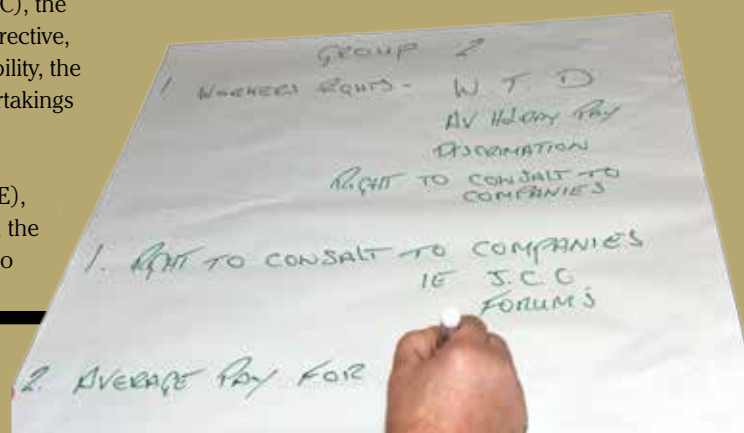 C), the
rective,
bility, the
rtakings
E),
the
o
GROUP 2
1. WORKERS RIGHTS - W T D
AV HOLIDAY PAY
DISCRIMATION
RIGHT TO CONSALT TO
COMPANIES
1. RIGHT TO CONSALT TO COMPANIES
IE J.C.C
FORUMS
2. AVERAGE PAY FOR